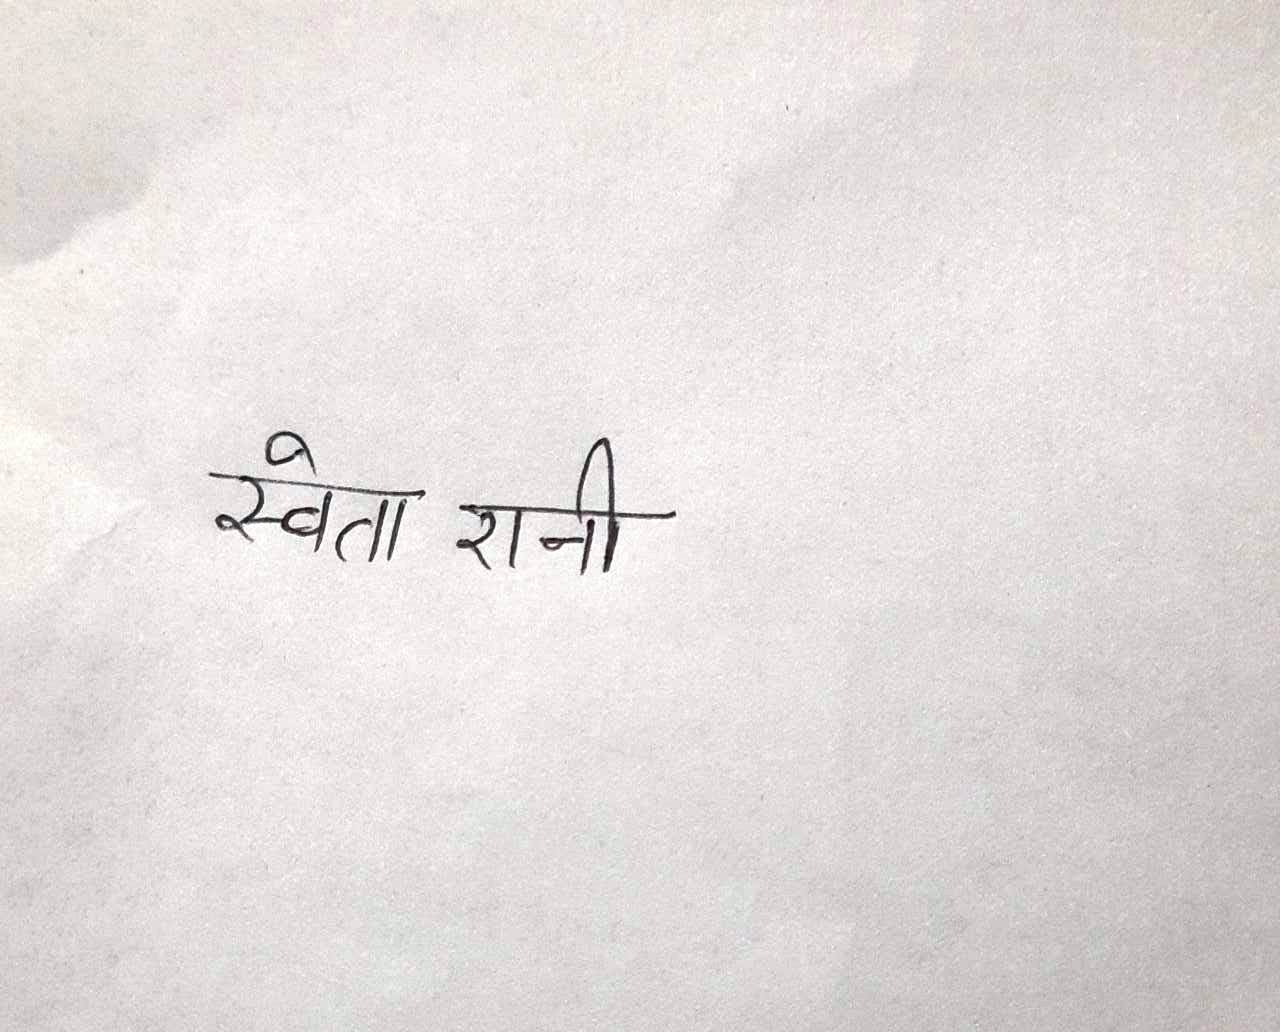 स्वेता रानी